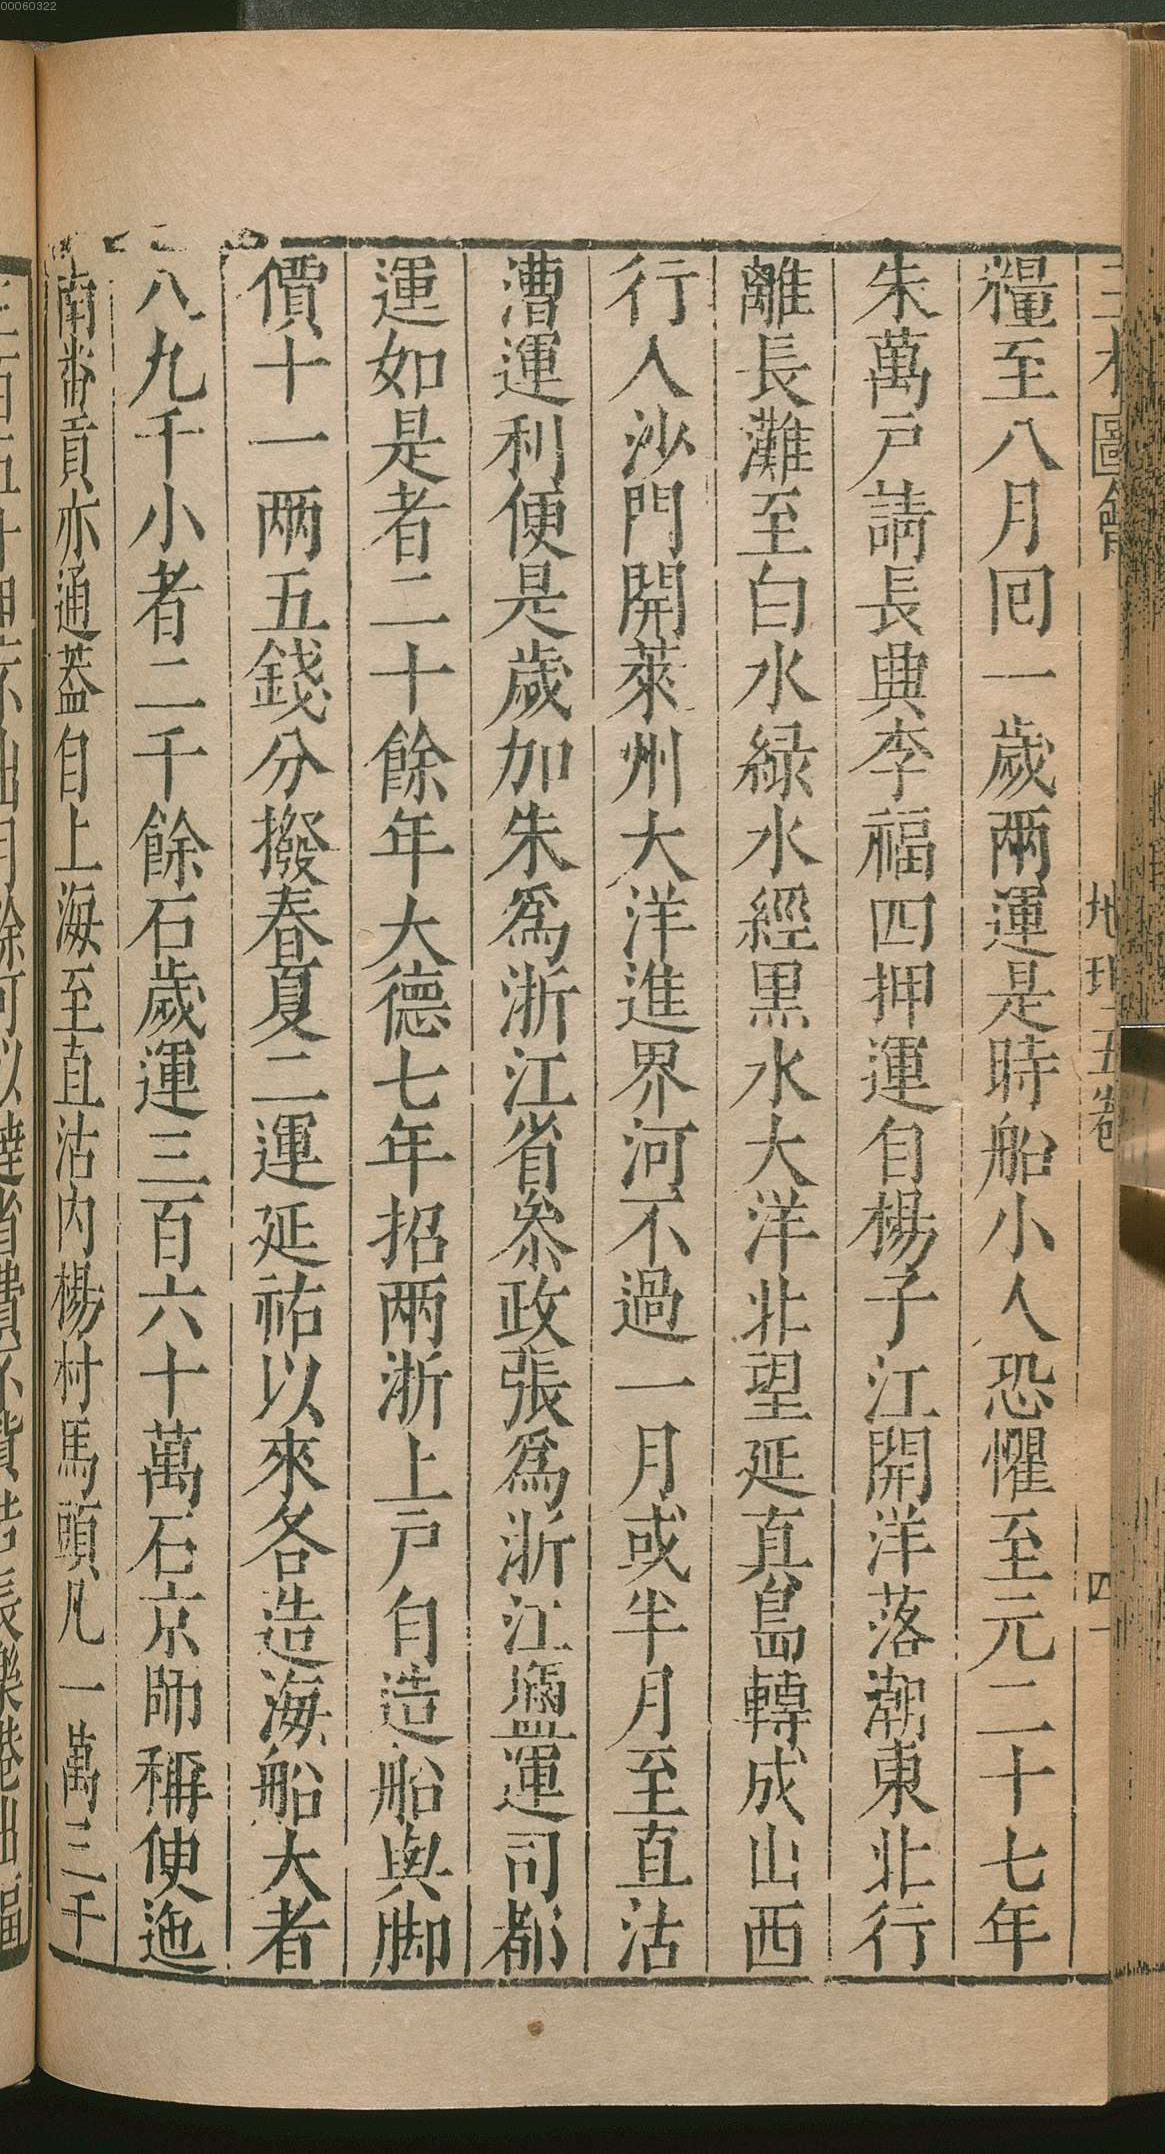 00060322
三才圖會 地理五卷 四十
糧至八月囘一歲兩運是時船小人恐懼至元二十七年
朱萬戸請長興李福四押運自楊子江開洋落潮東北行
離長灘至白水緑水經黒水大洋北望延真島轉成山西
行入沙門開萊州大洋進界河不過一月或半月至直沽
漕運利便是歳加朱爲浙江省叅政張爲浙江塩運司都
運如是者二十餘年大德七年招兩浙上戸自造船與脚
價十一兩五錢分撥春夏二運延祐以來各造海船大者
八九千小者二千餘石歲運三百六十萬石京師稱便迤
南畨貢亦通葢自上海至直沽内楊村馬頭凡一萬三千